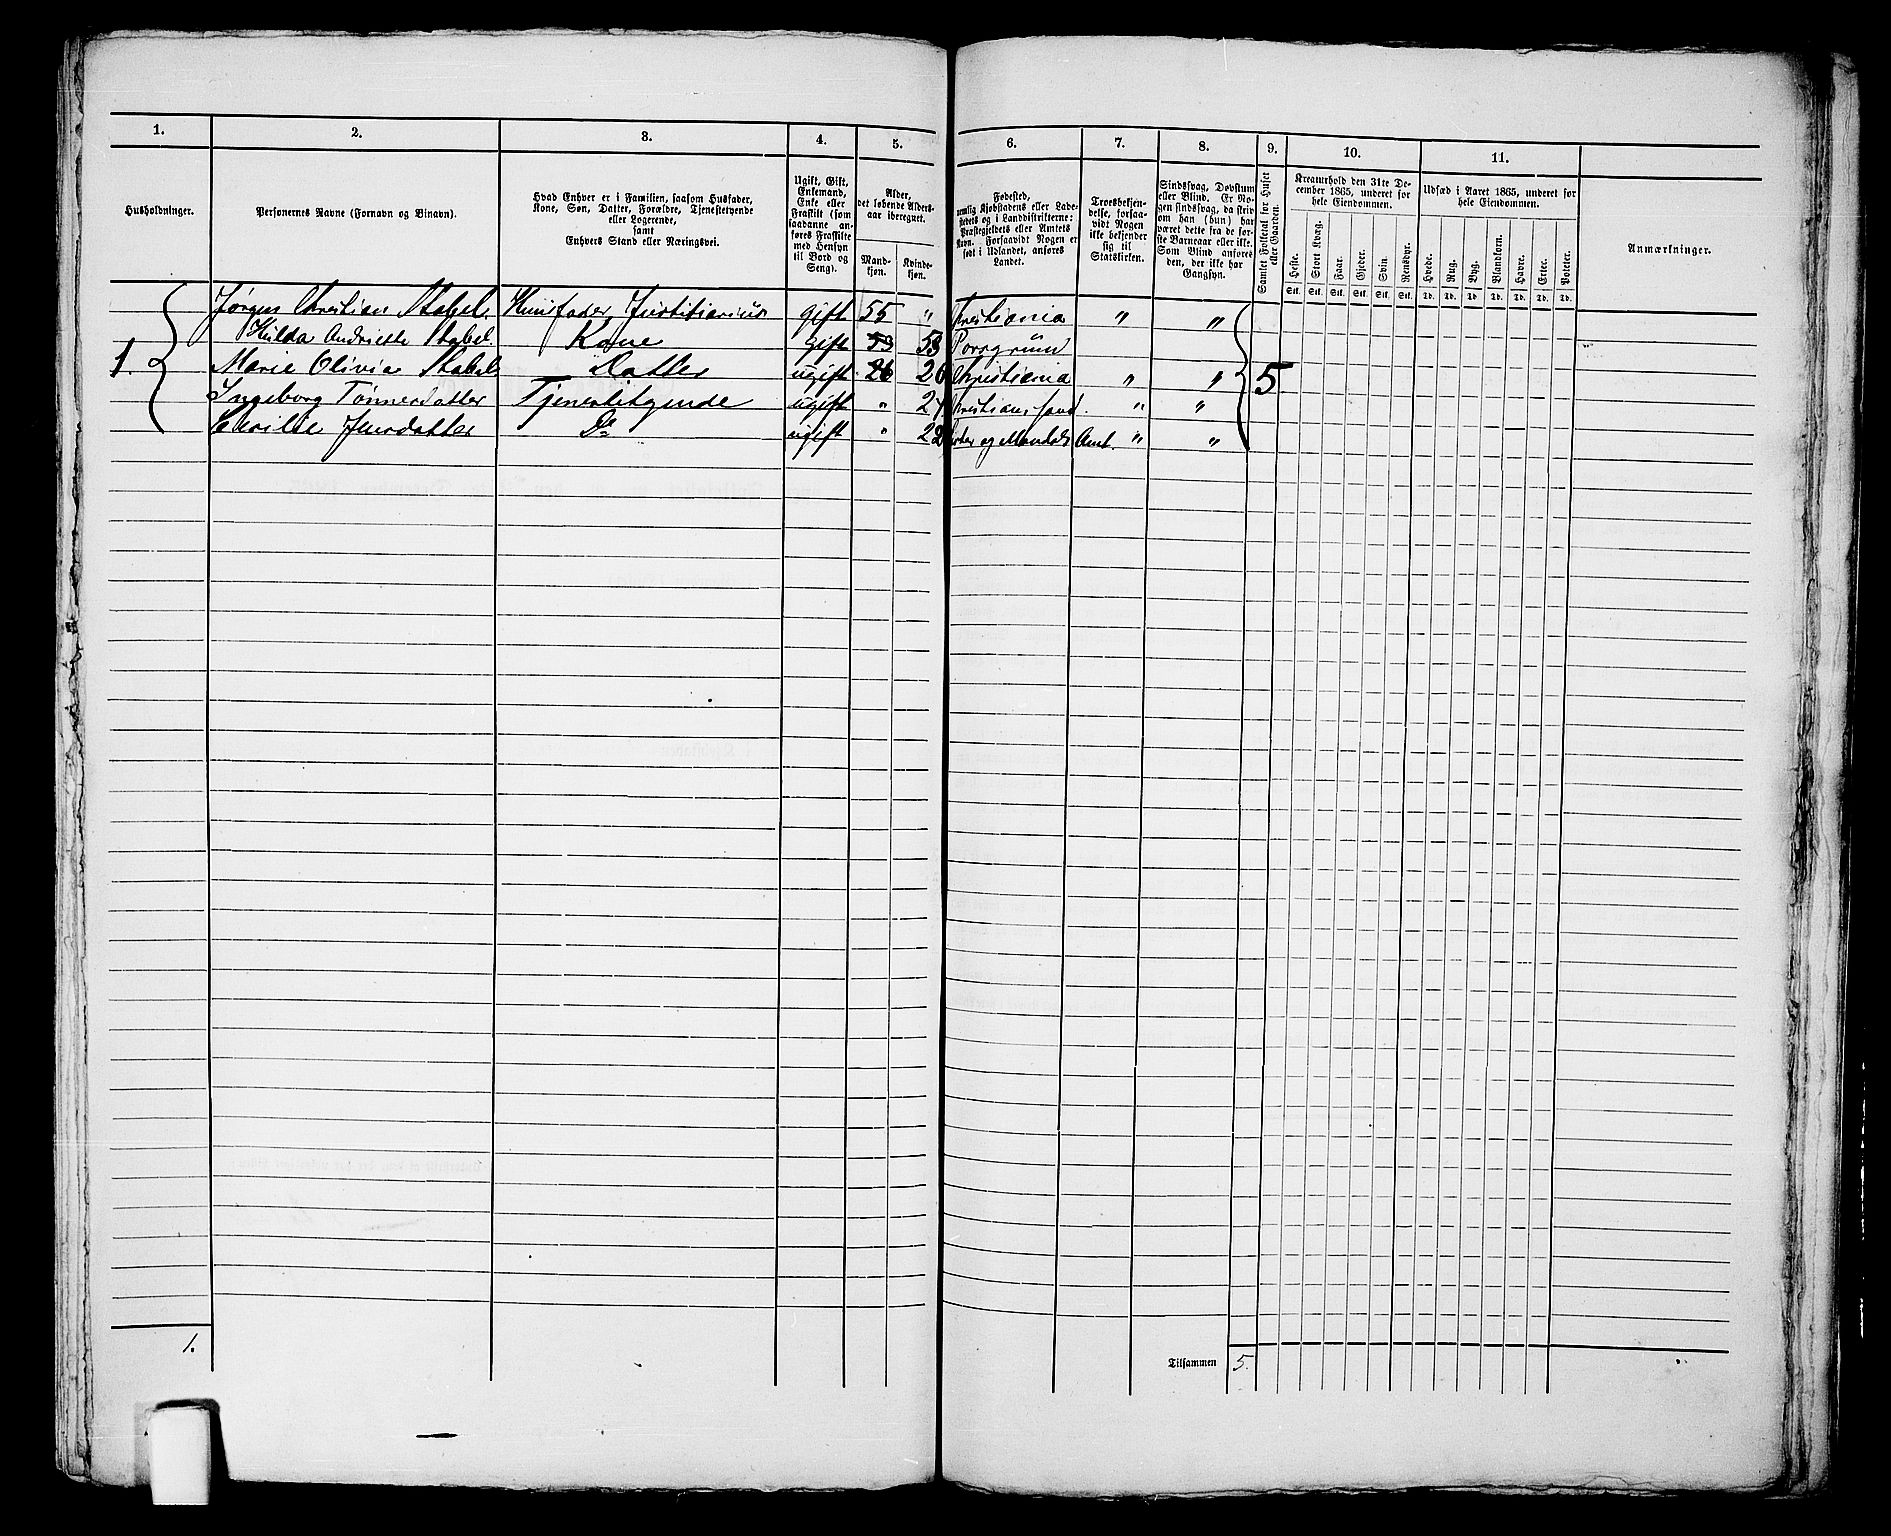 1. 2. 3. 4. 5. 6. 7. 8. 9. 10. 11.
Husholdninger.
Personernes Navne (Fornavn og Binavn).
Hvad Enhver er i Familien, saasom Husfader,
Kone, Søn, Datter, Forældre, Tjenestetyende
eller Logerende,
samt
Enhvers Stand eller Næringsvei.
Ugift, Gift,
Enkemand,
Enke eller
Fraskilt (som
saadanne an-
føres Fraskilte
med Hensyn
til Bord og
Seng).
Alder,
det løbende Alders-
aar iberegnet.
Mand-
kjøn.
Kvinde-
kjøn.
Fødested,
nemlig Kjøbstadens eller Lade-
stedets og i Landdistrikterne:
Præstegjeldets eller Amtets
Navn. Forsaavidt Nogen er
født i Udlandet, anføres
Landet.
Troesbekjen-
delse, forsaa-
vidt Nogen
ikke bekjender
sig til
Statskirken.
Sindssvag, Døvstum
eller Blind. Er No-
gen sindssvag, da skriv
om han (hun) har
været dette fra de før-
ste Barneaar eller ikke.
Som Blind anføres
den, der ikke har
Gangsyn.
Samlet Folketal for Huset
eller Gaarden.
Kreaturhold den 31te De-
cember 1865, underet for
hele Eiendommen.
Heste. Stort Kvæg. Faar. Gjeder. Svin. Rensdyr.
Stk. Stk. Stk. Stk. Stk. Stk.
Udsæd i Aaret 1865, underet for
hele Eiendommen.
Hvede. Rug. Byg. Blandkorn. Havre. Erter. Poteter.
Td. Td. Td. Td. Td. Td. Td.
Anmærkninger.
Jørgen Christian Stabel Huusfader Justitiarius gift 55 " Christiania " "
Hilda Andriette Stabel. Kone Gift 53 53 Porsgrund
1. Marie Olivia Stabel Datter ugift 26 26 Christiania " " 5
Ingeborg Tønnerdatter Tjenestetyende ugift " 27 Christianssand. " "
Jensdatter Do ugift " 22 og Mandals Amt. " "
1.
Tilsammen 5.